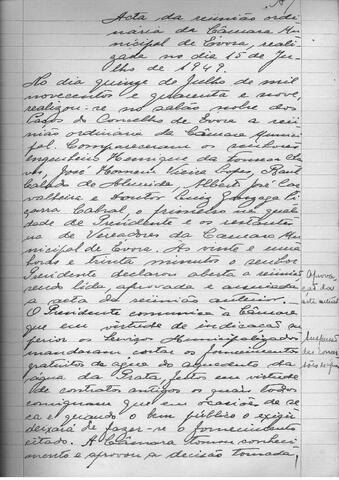 Acta da reunião ordi-
naria da Câmara Mu-
nicipal de Évora, reali-
zada no dia 15 de Ju-
lho de 1949.
No dia quinze de Julho de mil
novecentos e quarenta e nove,
realizou-se no salão nobre dos
Paços do Concelho de Evora a reu-
nião ordinaria da Câmara Muni-
cipal. Compareceram os senhores
Engenheiro Henrique da Fonseca Cha-
ves, José Homem Vieira Lopes, Raul
de Almeida, Alberto José Car-
valheira e Doutor Luiz Gonzaga
Cabral, o primeiro na quali-
dade de Presidente e os restantes
na de Vereadores da Câmara Mu-
nicipal de Evora. As vinte e uma
horas e trinta minutos o senhor
Presidente declarou aberta a reunião
sendo lida, aprovada e assinada
a acta da reunião anterior.
Aprova
ção da
acta
O Presidente comunica á Câmara
que em virtude de indicação su-
perior os Serviços Municipalizados
mandaram cortar os fornecimentos
gratuitos de agua do aqueduto da
agua da Prata, feitos em virtude
de contratos antigos os quais todos
consignam que em ocasiões de se-
ca e quando o bem público o exigir
deixará de fazer-se o fornecimento
citado. A Câmara tomou conheci-
mento e aprovou a decisão tomada,